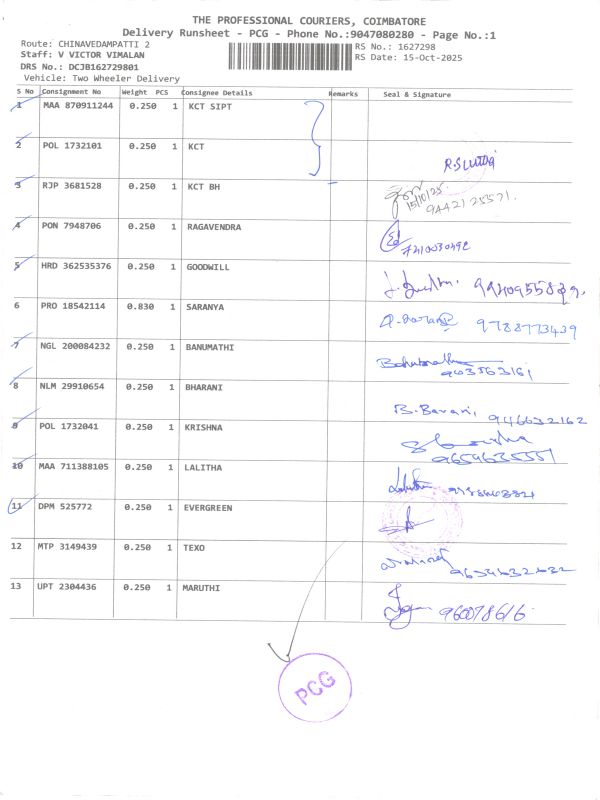 THE PROFESSIONAL COURIERS, COIMBATORE
Delivery Runsheet - PCG - Phone No.:9047080280 - Page No.:1
Route: CHINAVEDAMPATTI 2
RS No.: 1627298
Staff: V VICTOR VIMALAN
RS Date: 15-Oct-2025
DRS No.: DCJB162729801
Vehicle: Two Wheeler Delivery
S No Consignment No Weight PCS Consignee Details Remarks Seal & Signature
1 MAA 870911244 0.250 1 KCT SIPT
2 POL 1732101 0.250 1 KCT
3 RJP 3681528 0.250 1 KCT BH
15/10/25
4 PON 7948706 0.250 1 RAGAVENDRA
5 HRD 362535376 0.250 1 GOODWILL
6 PRO 18542114 0.830 1 SARANYA 9788773439
7 NGL 200084232 0.250 1 BANUMATHI
8 NLM 29910654 0.250 1 BHARANI B. Barani, 946632162
9 POL 1732041 0.250 1 KRISHNA
10 MAA 711388105 0.250 1 LALITHA
11 DPM 525772 0.250 1 EVERGREEN
12 MTP 3149439 0.250 1 TEXO
13 UPT 2304436 0.250 1 MARUTHI 960078616
PCG